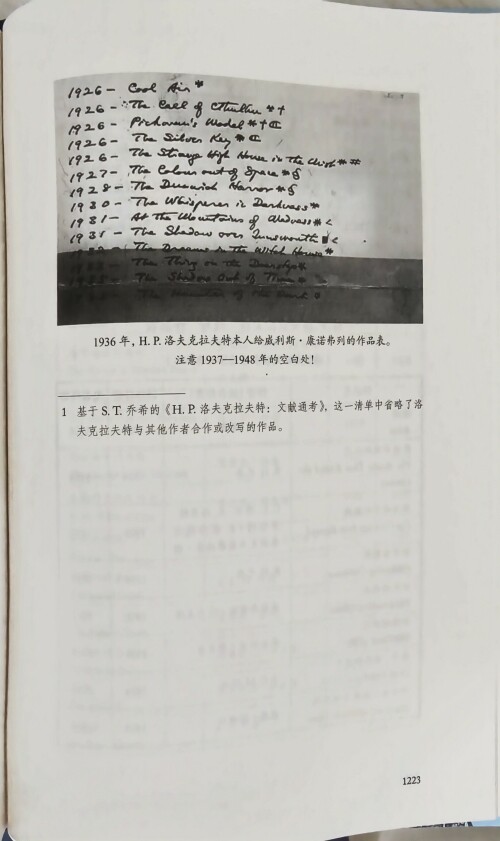 1926 - Cool Air *
1926 - The Call of Cthulhu * †
1926 - Pickman's Model * † ⊄
1926 - The Silver Key * ⊄
1926 - The Strange High House in the Mist * #
1927 - The Colour out of Space * §
1928 - The Dunwich Horror * §
1930 - The Whisperer in Darkness *
1931 - At the Mountains of Madness * <
1931 - The Shadow over Innsmouth <
The Dreams in the Witch House *
The Thing on the Doorstep *
The Shadow Out of Time *
The Haunter of the Dark *
1936 年，H. P. 洛夫克拉夫特本人给威利斯·康诺弗列的作品表。
注意 1937—1948 年的空白处！
1 基于 S. T. 乔希的《H. P. 洛夫克拉夫特：文献通考》，这一清单中省略了洛
夫克拉夫特与其他作者合作或改写的作品。
1223